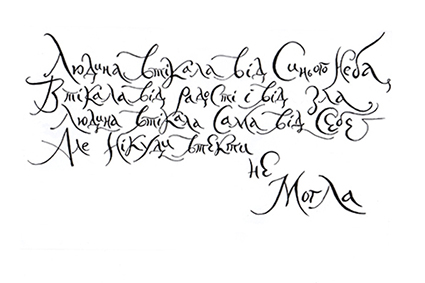 Людина втікала від Синього Неба,
Втікала від радості і від зла,
Людина втікала Сама від Себе
Але Нікуди втекти
не
Могла